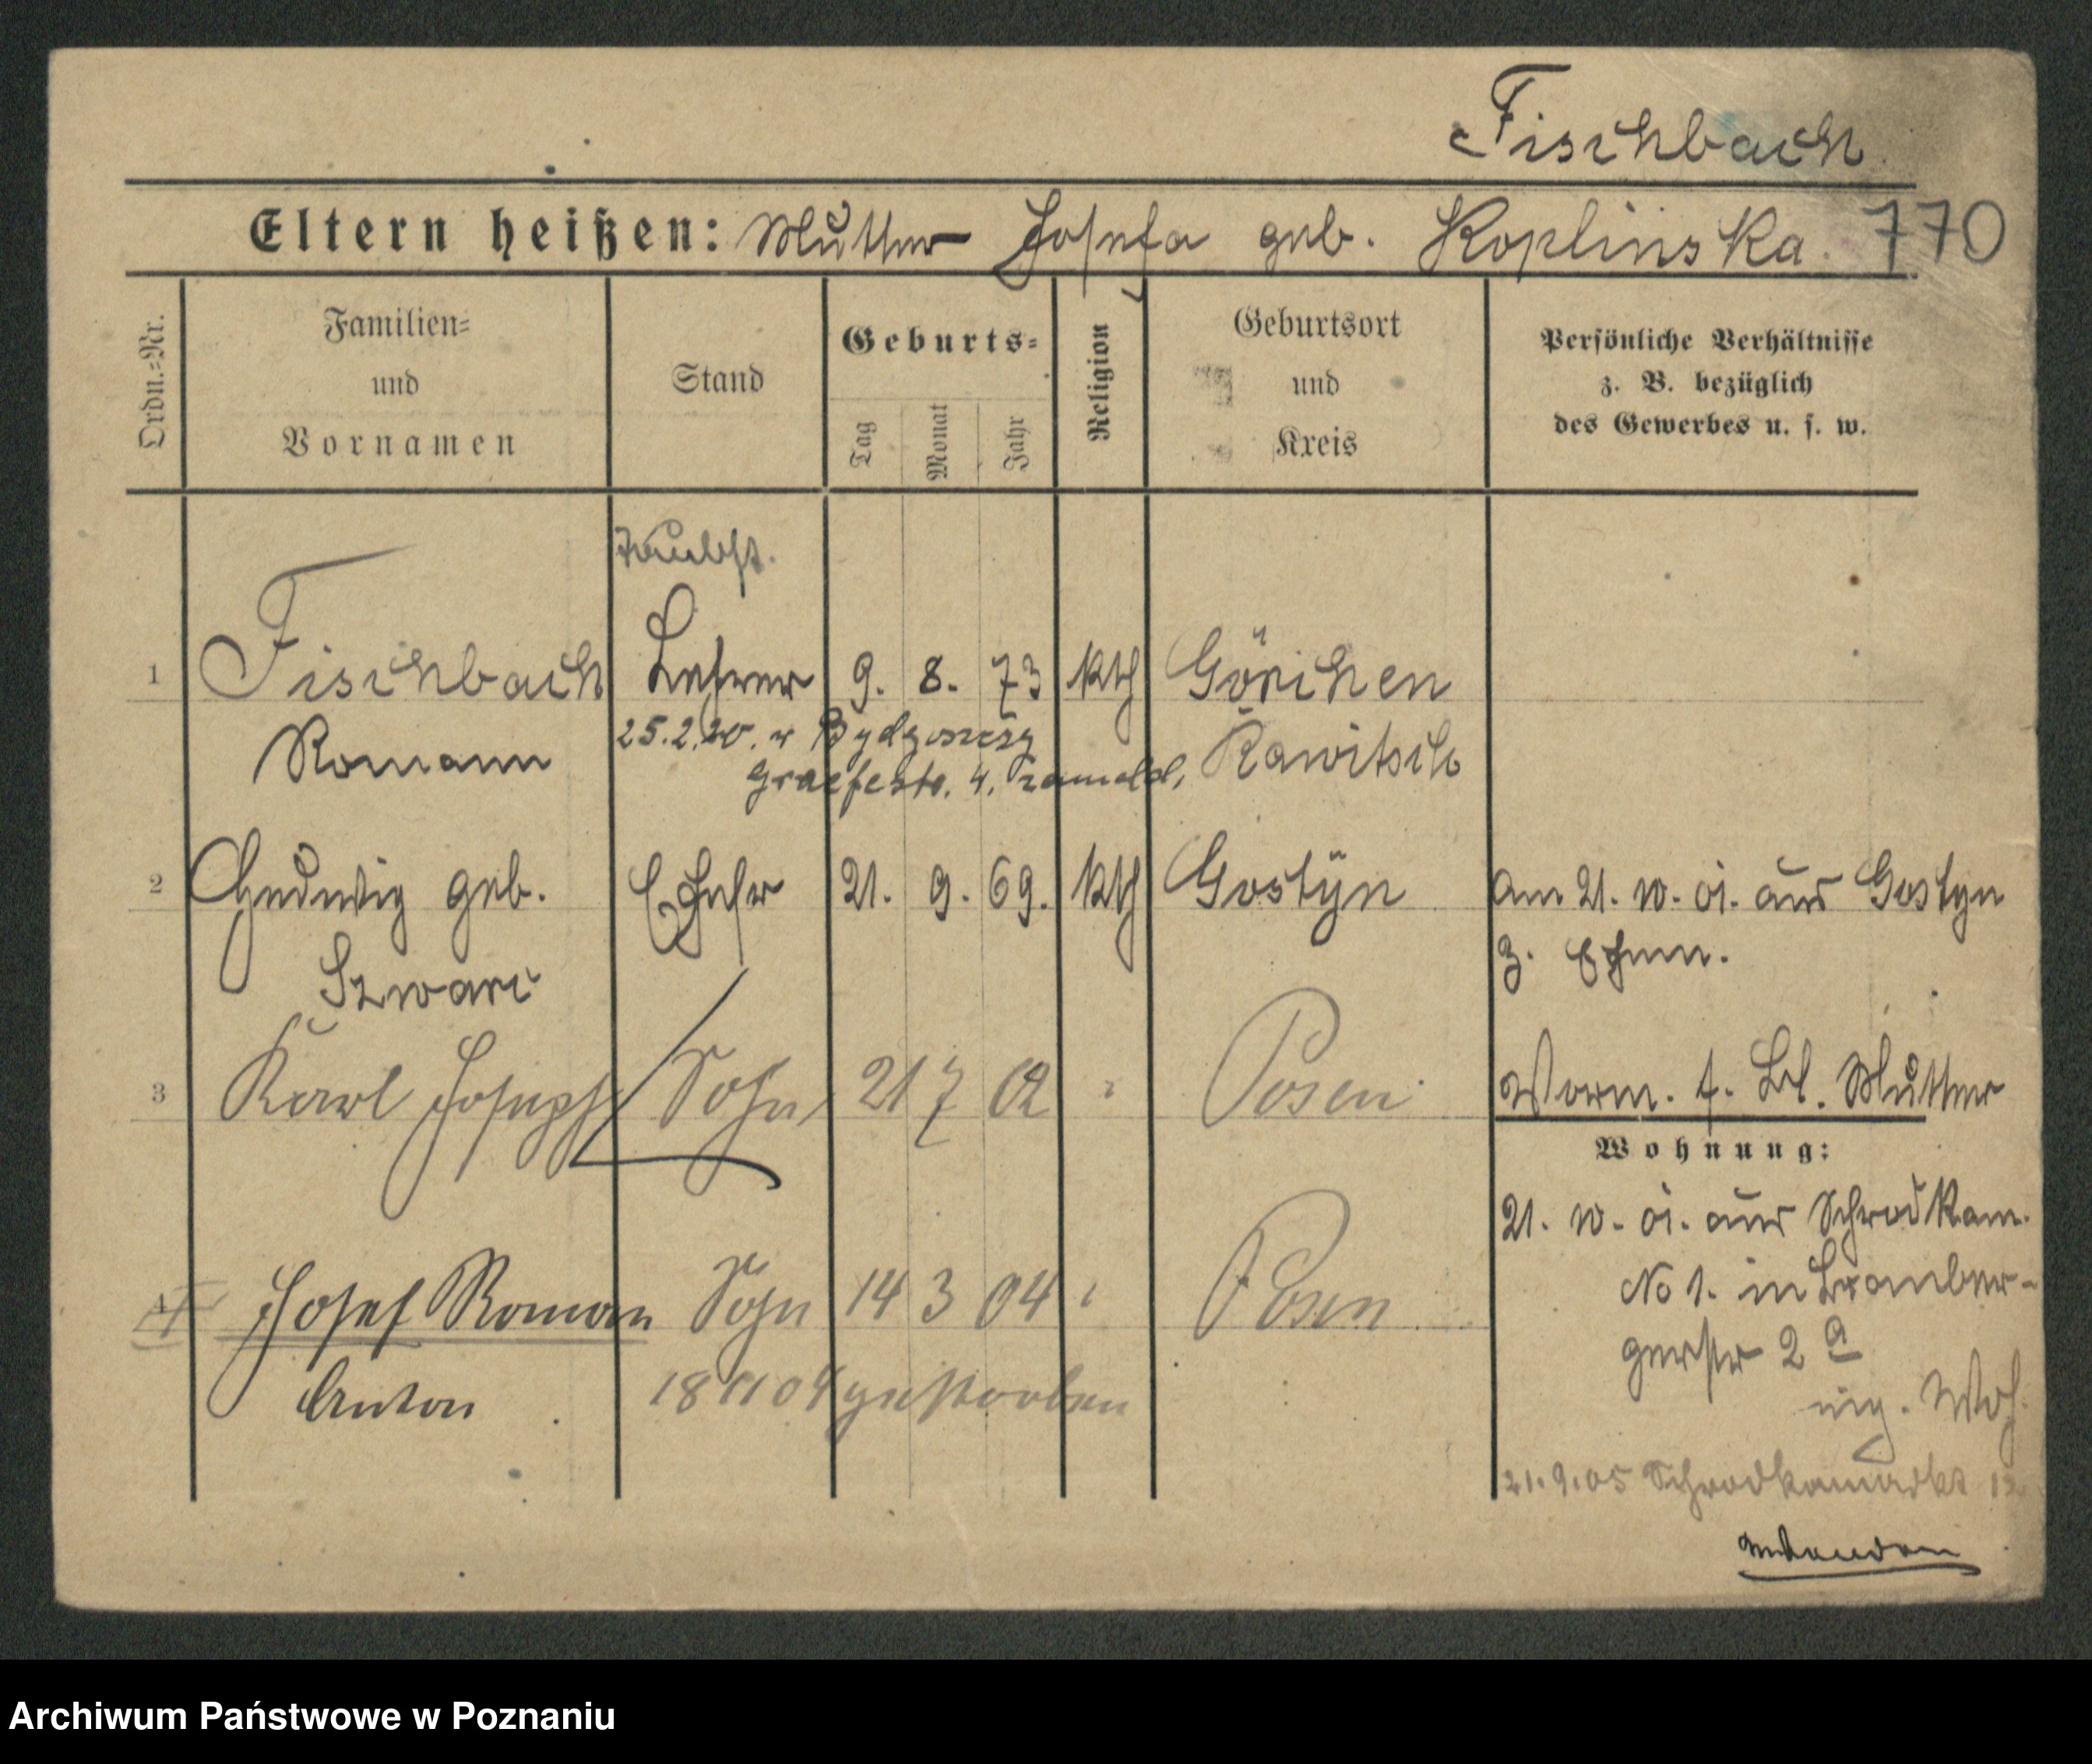 Fischbach
Eltern heißen: Mutter Josefa geb. Koplinska. 770
Ordn.=Nr.
Familien=
und
Vornamen
Stand
Geburts=
Tag
Monat
Jahr
Religion
Geburtsort
und
Kreis
Persönliche Verhältnisse
z. B. bezüglich
des Gewerbes u. s. w.
Taubst.
1 Fischbach Lehrer 9. 8. 73 kth Görchen
Romann 25.2.20. w Bydgoszczy Rawitsch
Graefestr. 4.
2 Hedwig geb. Ehefr 21. 9. 69. kth Gostÿn
Szwarc
am 21. 10. 01. aus Gostyn
z. Ehem.
3 Karl Joseph Sohn 21 7 02 " Posen
Vorm. f. Bl. Mutter
Wohnung:
21. 10. 01. aus Schrodkam.
No 1. in Bromber-
gerstr 2 a
eig. Woh.
4 Josef Roman Sohn 14 3 04 " Posen
Anton 18 11 04 gestorben
21.9.05 Schrodkamarkt 12
Archiwum Państwowe w Poznaniu